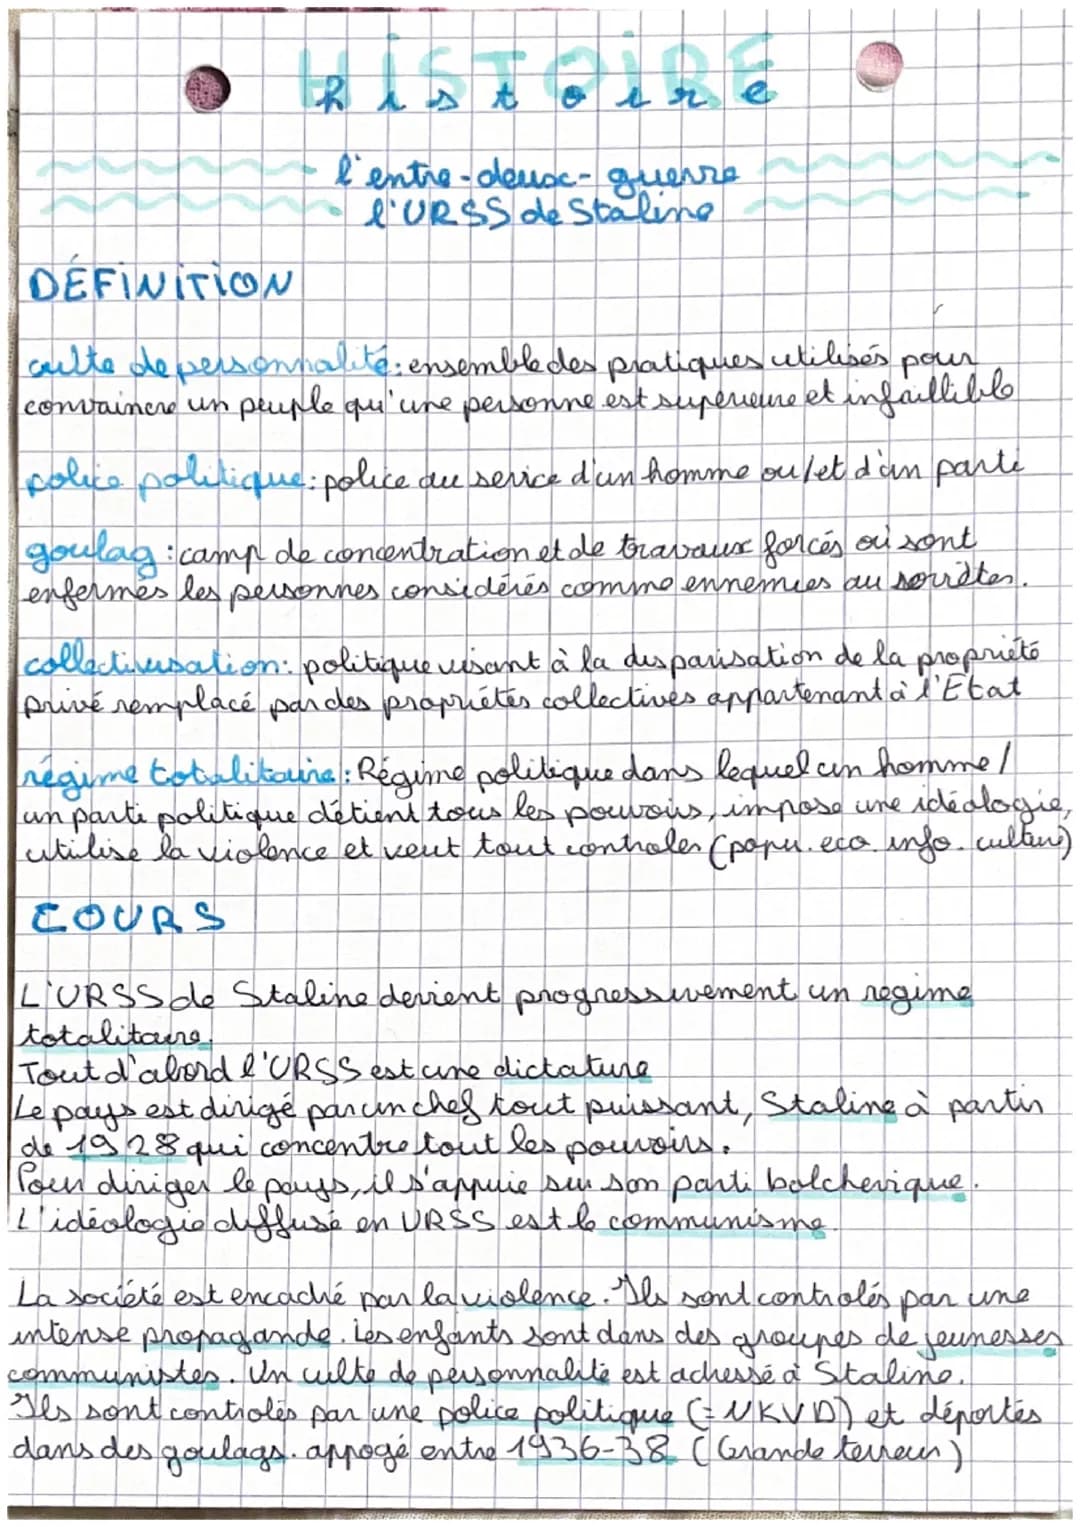 HISTOIRE
histoire
l'entre-deux-guerre
l'URSS de Staline
DÉFINITION
culte de personnalité : ensemble des pratiques utilisés pour
convaincre un peuple qu'une personne est superieure et infaillible
police politique : police au service d'un homme ou/et d'un parti
goulag : camp de concentration et de travaux forcés où sont
enfermés les personnes considérés comme ennemies au soviétes.
collectivisation : politique visant à la disparisation de la propriété
privé remplacé par des propriétés collectives appartenant à l'État
régime totalitaire : Régime politique dans lequel un homme /
un parti politique détient tous les pouvoirs, impose une idéologie,
utilise la violence et veut tout controler (popu. eco. info. culture)
COURS
L'URSS de Staline devient progressivement un regime
totalitaire.
Tout d'abord l'URSS est une dictature
Le pays est dirigé par un chef tout puissant, Staline à partir
de 1928 qui concentre tout les pouvoirs.
Pour diriger le pays, il s'appuie sur son parti bolchevique.
L'idéologie diffusé en URSS est le communisme.
La société est encadré par la violence. Ils sont controlés par une
intense propagande. Les enfants sont dans des groupes de jeunesses
communistes. Un culte de personnalité est adressé à Staline.
Ils sont controlés par une police politique (= NKVD) et déportés
dans des goulags. appogé entre 1936-38 (Grande terreur)